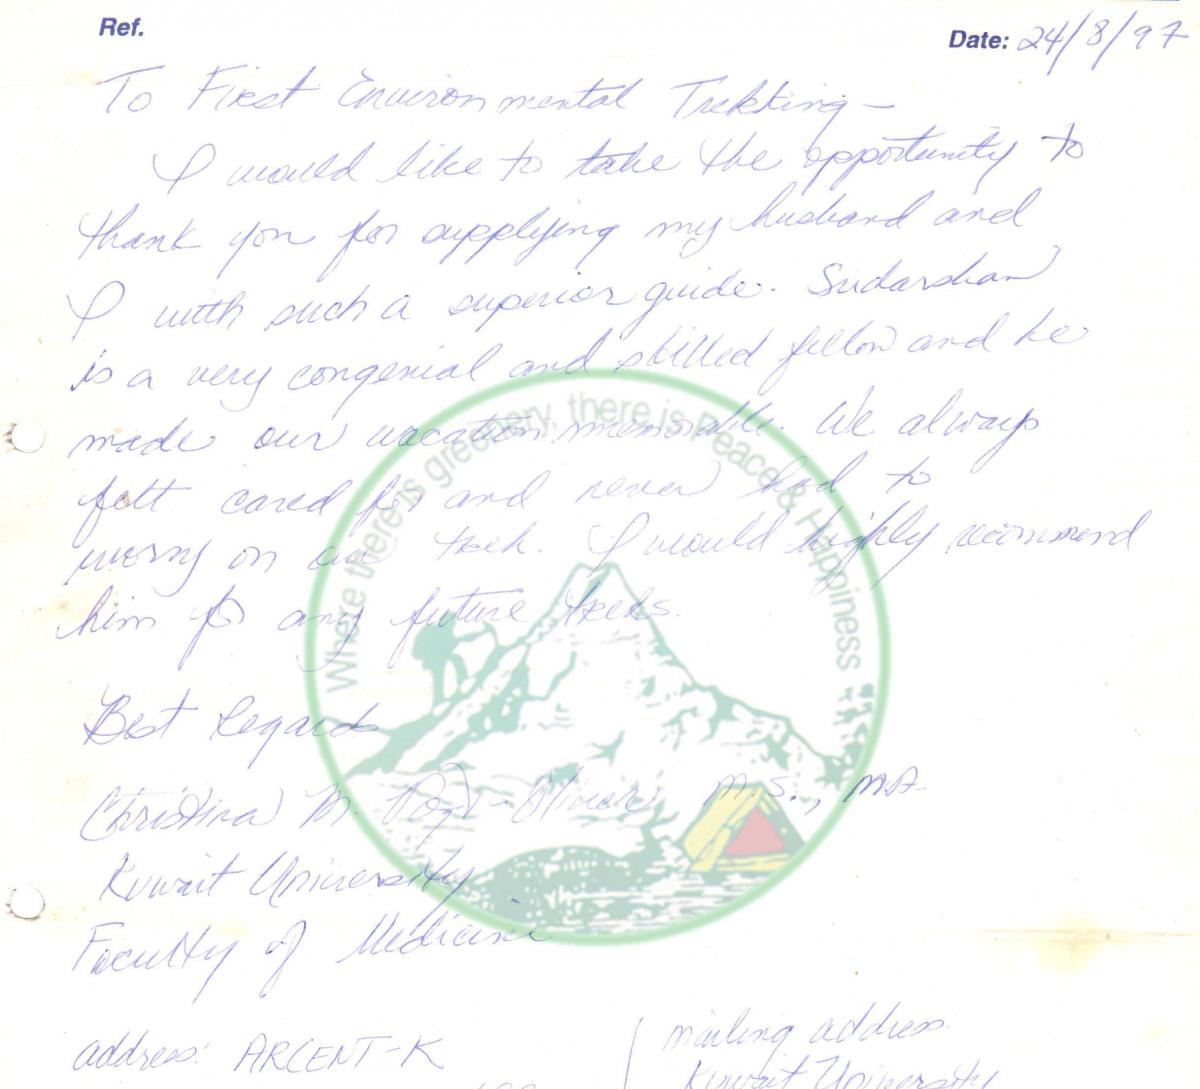 Ref.
Date: 24/8/97
To First Environmental Trekking –
I would like to take the opportunity to
thank you for supplying my husband and
I with such a superior guide. Sudarshan
is a very congenial and skilled fellow and he
made our vacation memorable. We always
felt cared for and never had to
worry on our trek. I would highly recommend
him for any future treks.
Where there is greenery, there is Peace & Happiness
Best Regards
Christina M. M.S., M.A.
Kuwait University
Faculty of Medicine
address: ARCENT-K
mailing address
Kuwait University